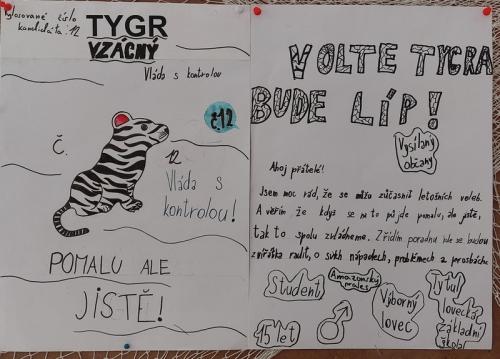 Vylosované číslo
kandidáta: 12
TYGR
VZÁCNÝ
Vláda s kontrolou
č.12
Č.
12
Vláda s
kontrolou!
POMALU ALE
JISTĚ!
VOLTE TYGRA
BUDE LÍP!
Vysílaný
občany
Ahoj přátelé!
Jsem moc rád, že se můžu zúčasnit letošních voleb.
A věřím že kdys se na to půjde pomalu, ale jistě,
tak to spolu zvládneme. Zřídím poradnu kde se budou
zvířátka radit, o svkh nápadech, problémech a prosbách.
Student
Amazonský
prales
Výborný
lovec
Tytul
lovecká
základní
škola
15 let